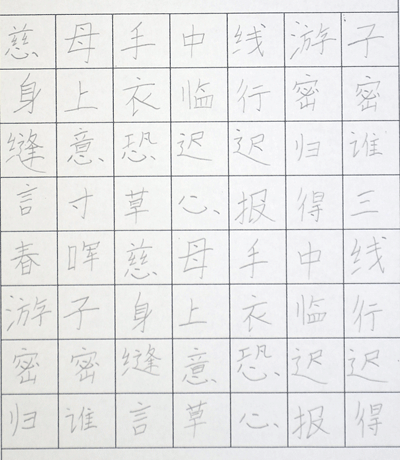 慈母手中线游子
身上衣临行密密
缝意恐迟迟归谁
言寸草心报得三
春晖慈母手中线
游子身上衣临行
密密缝意恐迟迟
归谁言草心报得